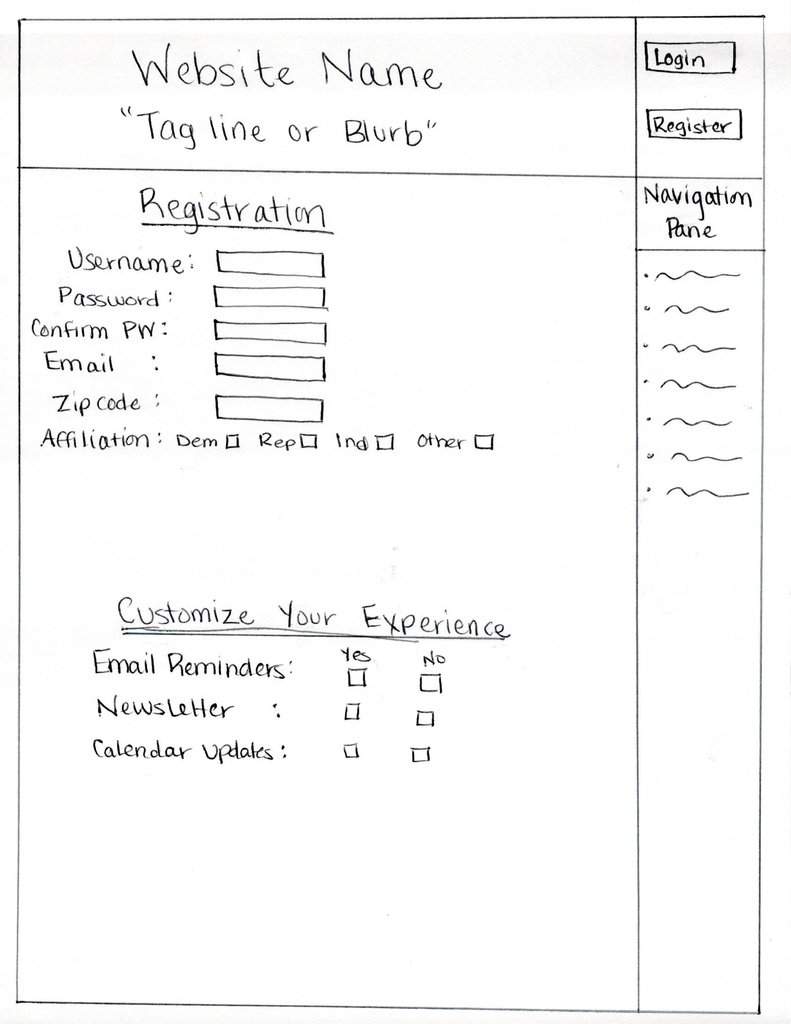 Website Name
"Tag line or Blurb"
Login
Register
Navigation
Pane
Registration
Username:
Password:
Confirm PW:
Email :
Zip code :
Affiliation: Dem Rep Ind Other
Customize Your Experience
Yes No
Email Reminders:
Newsletter :
Calendar Updates: